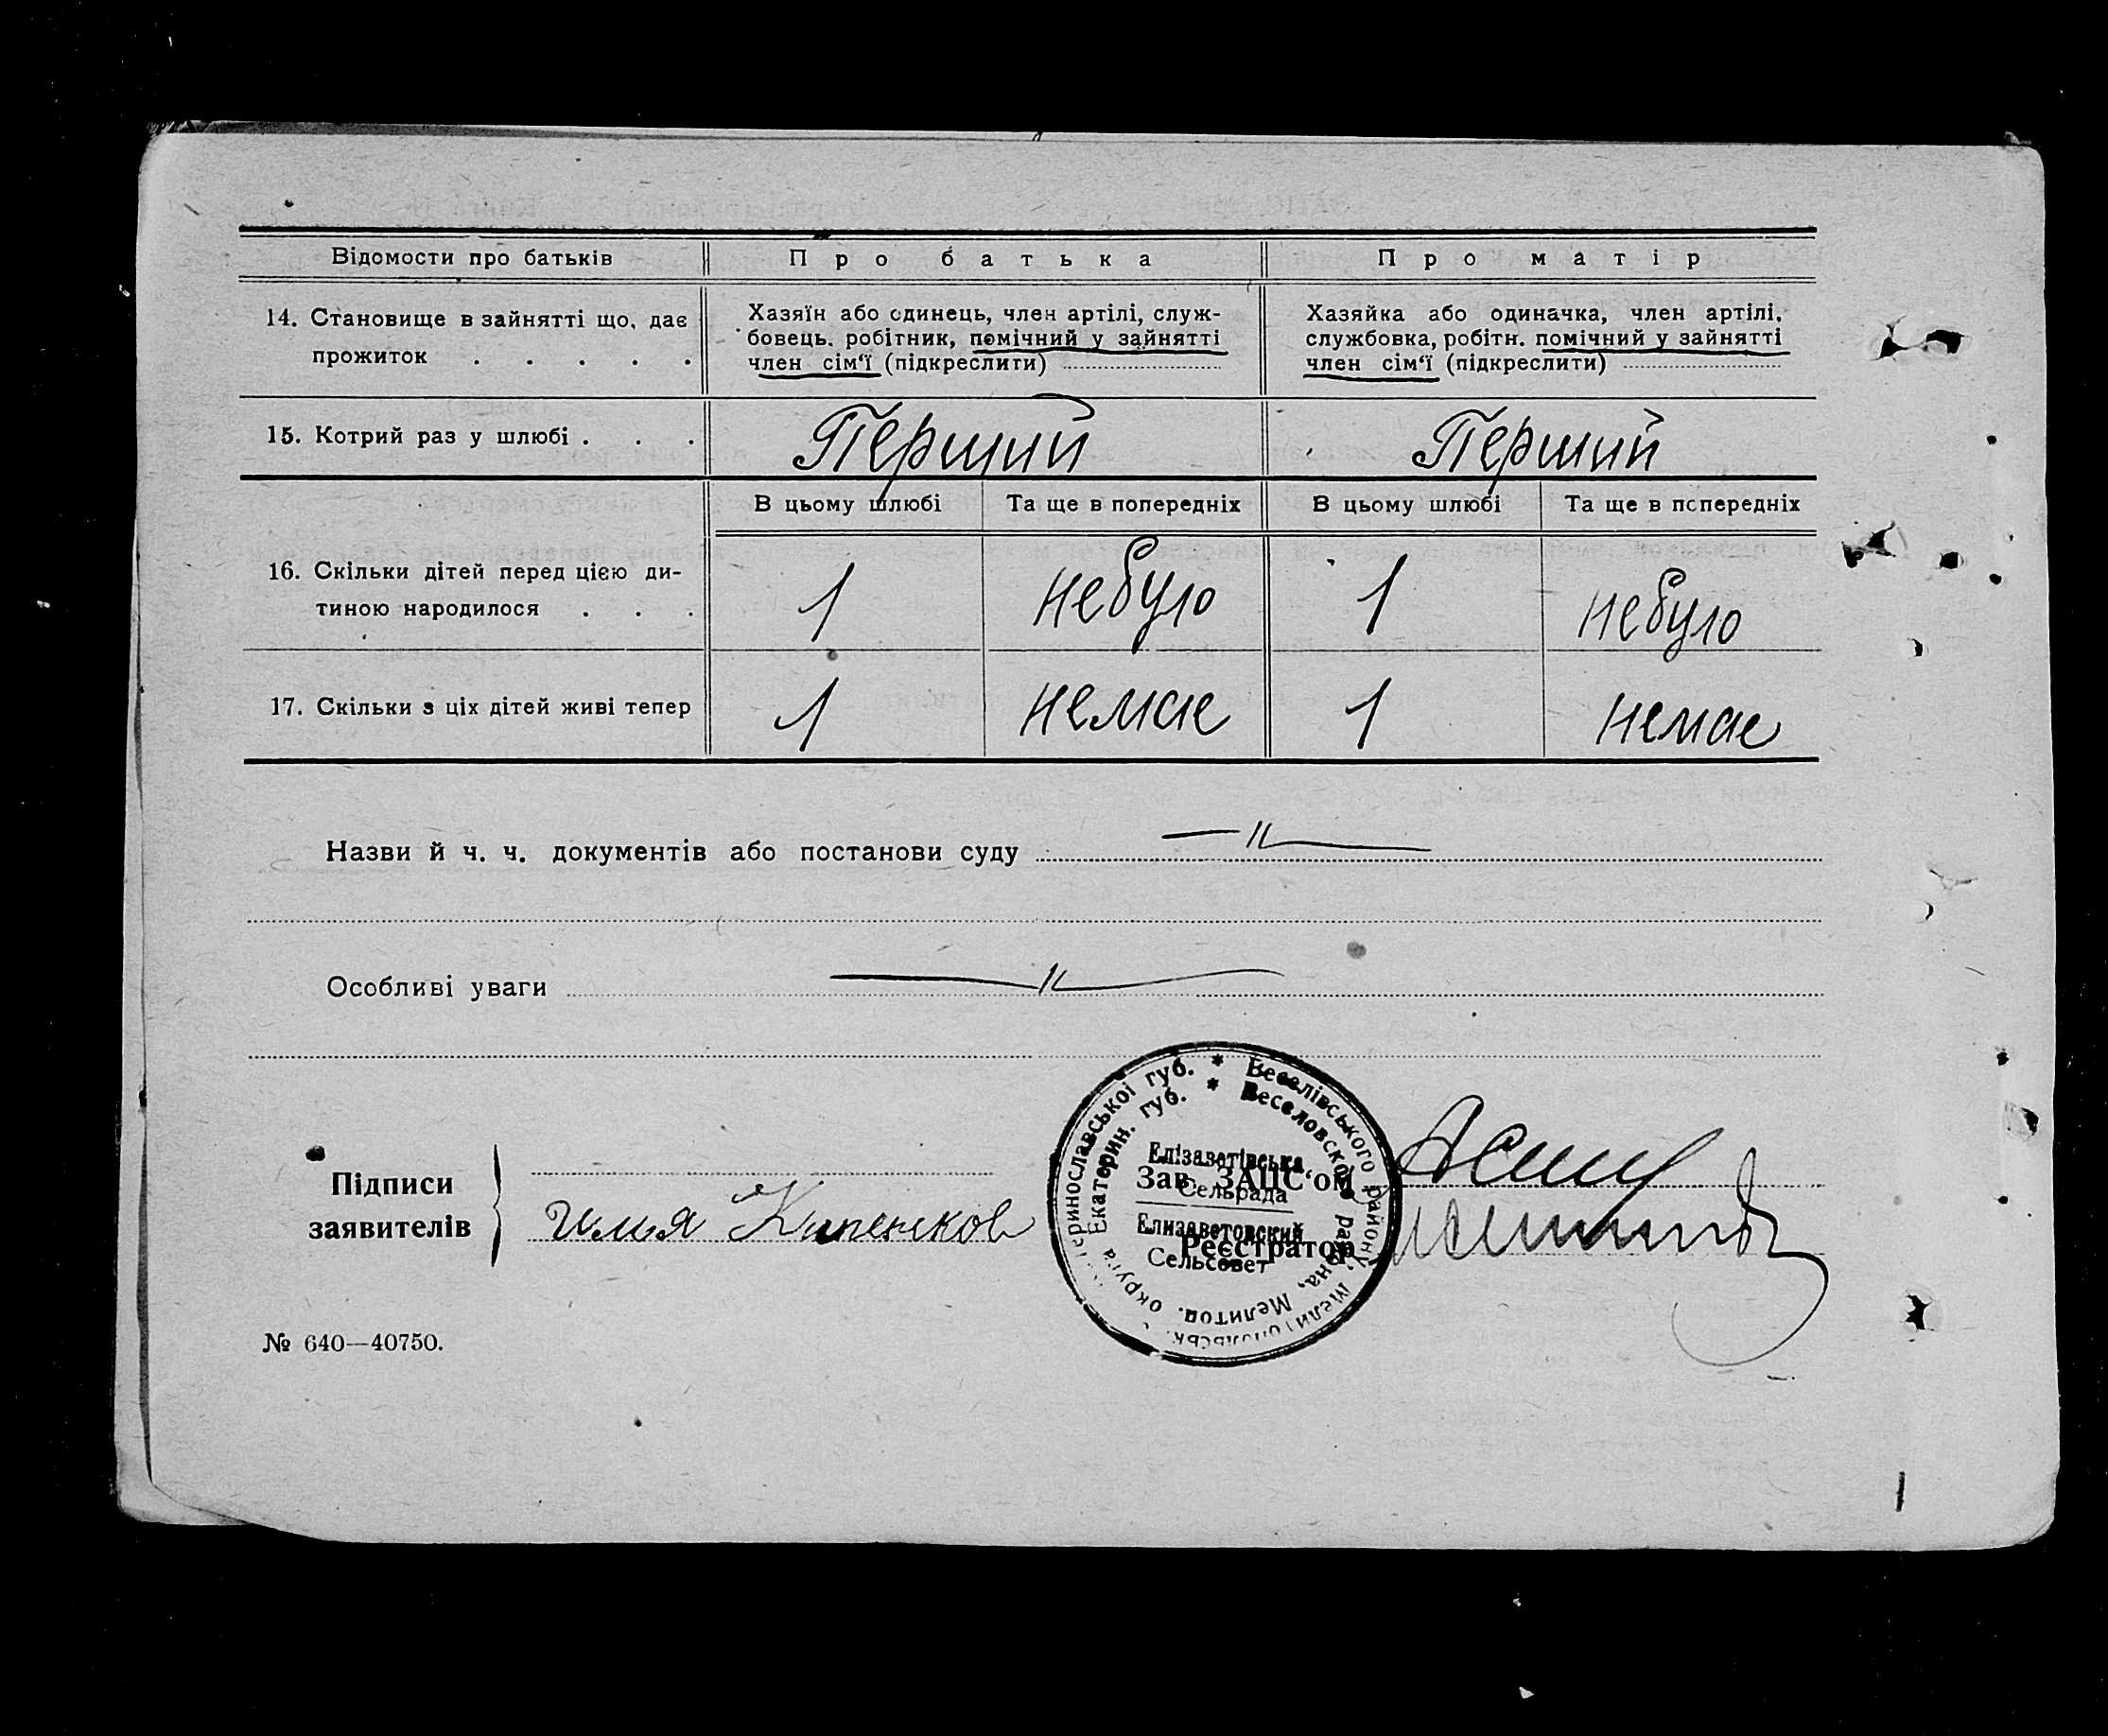 Відомости про батьків Про батька Про матір
14. Становище в зайнятті що, дає прожиток . . . . .
Хазяїн або одинець, член артілі, служ-
бовець. робітник, помічний у зайнятті
член сім‘ї (підкреслити)
Хазяйка або одиначка, член артілі,
службовка, робітн. помічний у зайнятті
член сім‘ї (підкреслити)
15. Котрий раз у шлюбі . . . Перший Перший
В цьому шлюбі Та ще в попередніх В цьому шлюбі Та ще в попередніх
16. Скільки дітей перед цією ди-
тиною народилося . . . 1 небуло 1 небуло
17. Скільки з ціх дітей живі тепер 1 немає 1 немає
Назви й ч. ч. документів або постанови суду —"—
Особливі уваги —"—
Підписи
заявителів
Зав. ЗАЦС‘ом
Реєстратор
Веселівського району
Катеринославської губ. *
Екатерин. губ. * Веселовского района, Мелитоп. округа
Елізаветівська
Сельрада
Елизаветовский
Сельсовет
№ 640—40750.